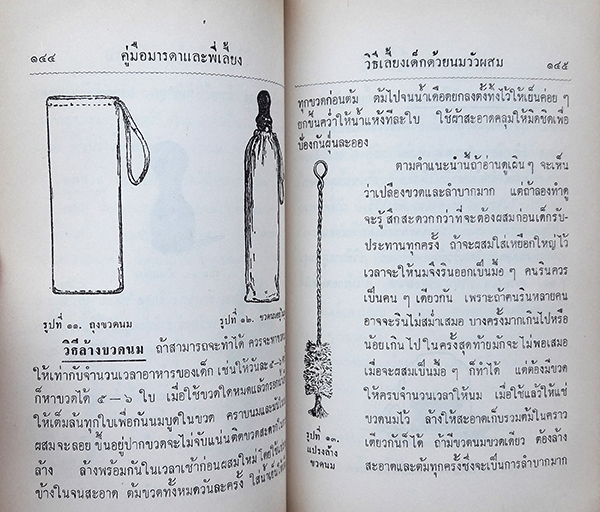 ๑๔๔
คู่มือมารดาและพี่เลี้ยง
รูปที่ ๑๑. ถุงขวดนม
รูปที่ ๑๒.
วิธีล้างขวดนม ถ้าสามารถจะทำได้ ควรจะหา
ให้เท่ากับจำนวนเวลาอาหารของเด็ก เช่นให้วันละ ๕–๖
ก็หาขวดได้ ๕–๖ ใบ เมื่อใช้ขวดใดหมดแล้ว
ให้เต็มล้นทุกใบเพื่อกันนมบูดในขวด คราบนม
ผสมจะลอย ขึ้นอยู่ปากขวดจะไม่จับแน่นติดขวด
ล้าง ล้างพร้อมกันในเวลาเช้าก่อนผสมใหม่ โดยใช้
ข้างในจนสะอาด ต้มขวดทั้งหมดวันละครั้ง
วิธีเลี้ยงเด็กด้วยนมวัวผสม
๑๔๕
ทุกขวดก่อนต้ม ต้มไปจนน้ำเดือดยกลงตั้งทิ้งไว้ให้เย็นค่อย ๆ
ยกขึ้นคว่ำให้น้ำแห้งทีละใบ ใช้ผ้าสะอาดคลุมให้มิดชิดเพื่อ
ป้องกันฝุ่นละออง
ตามคำแนะนำนี้ถ้าอ่านดูเผิน ๆ จะเห็น
ว่าเปลืองขวดและลำบากมาก แต่ถ้าลองทำดู
จะรู้สึกสะดวกกว่าที่จะต้องผสมก่อนเด็กรับ-
ประทานทุกครั้ง ถ้าจะผสมใส่เหยือกใหญ่ไว้
เวลาจะให้นมจึงรินออกเป็นมื้อ ๆ คนรินควร
เป็นคน ๆ เดียวกัน เพราะถ้าคนรินหลายคน
อาจจะรินไม่สม่ำเสมอ บางครั้งมากเกินไปหรือ
น้อยเกินไปในครั้งสุดท้ายมักจะไม่พอเสมอ
เมื่อจะผสมเป็นมื้อ ๆ ก็ทำได้ แต่ต้องมีขวด
ให้ครบจำนวนเวลาให้นม เมื่อใช้แล้วให้แช่
ขวดนมไว้ ล้างให้สะอาดเก็บรวมต้มในคราว
เดียวกันก็ได้ ถ้ามีขวดนมขวดเดียว ต้องล้าง
สะอาดและต้มทุกครั้งซึ่งจะเป็นการลำบากมาก
รูปที่ ๑๓.
แปรงล้าง
ขวดนม